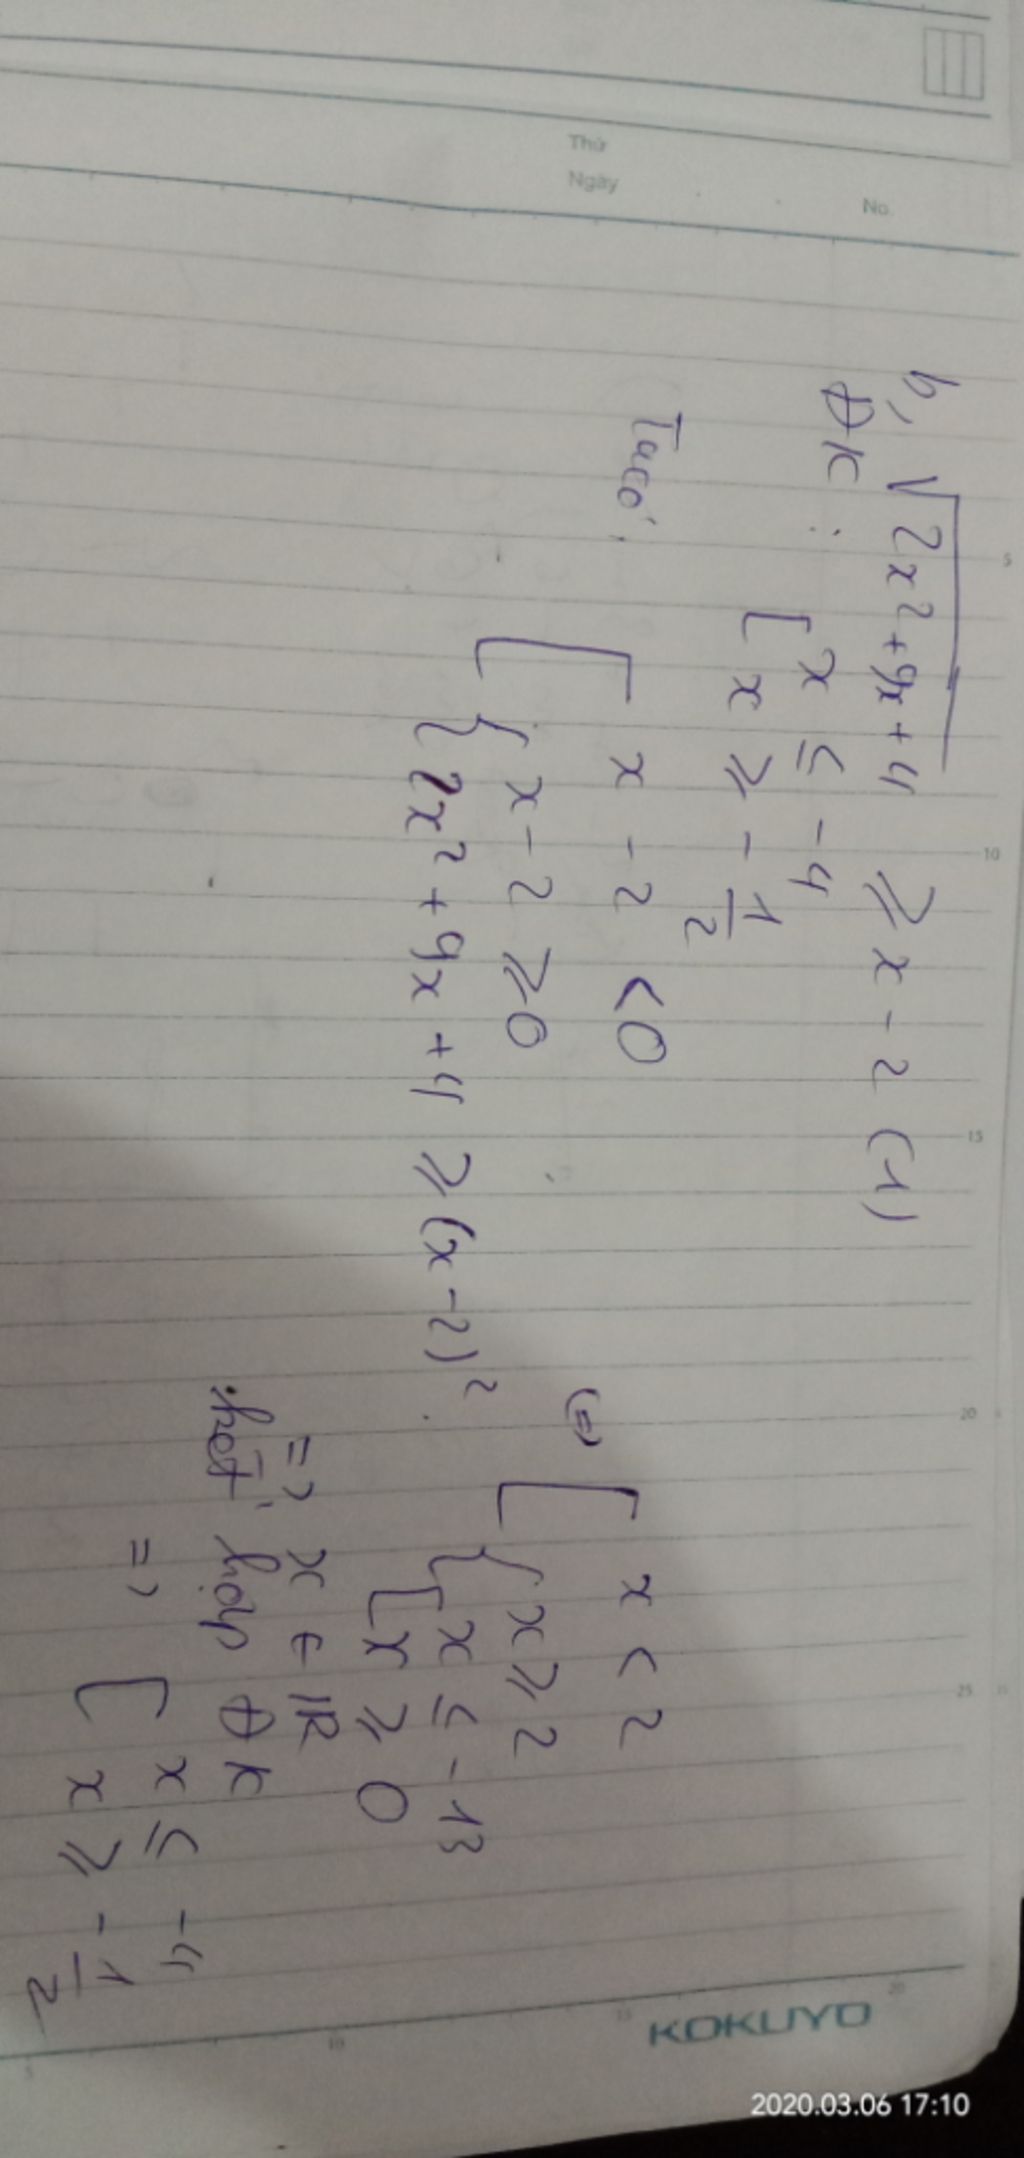 Thứ
Ngày
No.
b, √(2x² + 9x + 4) ≥ x - 2 (1)
ĐK : [ x ≤ -4
x ≥ - 1/2
Ta có:
[ x - 2 < 0
{ x - 2 ≥ 0
2x² + 9x + 4 ≥ (x - 2)²
(=) [ x < 2
{ x ≥ 2
[ x ≤ -13
x ≥ 0
=> x ∈ ℝ
kết hợp ĐK
=> [ x ≤ -4
x ≥ - 1/2
5
10
15
20
25
KOKUYO
5
10
15
20
2020.03.06 17:10